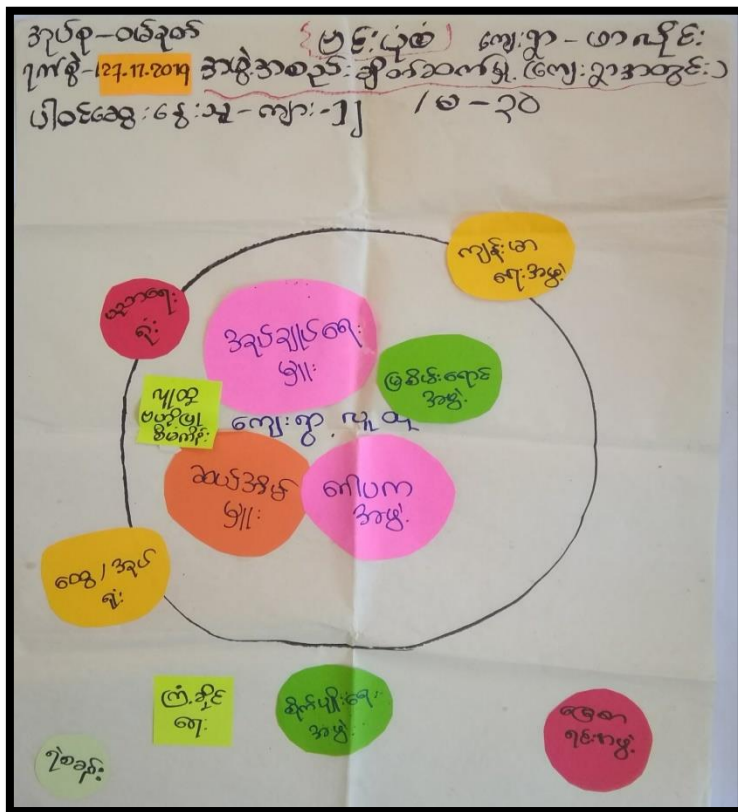 အုပ်စု-ဝမ်ခုတ် {မြင်းပုံစံ} ကျေးရွာ-ဟာလိုင်း
ရက်စွဲ-(27.11.2019 အဖွဲ့အစည်းချိတ်ဆက်မှု (ကျေးရွာအတွင်း)
ပါဝင်ဆွေးနွေးသူ-ကျား-၁၂ / မ-၃၀
ကျန်းမာ
ရေးအဖွဲ့
ရုံး
အုပ်ချုပ်ရေး
မှူး
မြစိမ်းရောင်
အဖွဲ့
လူထု
ဗဟိုပြု
စီမံကိန်း
ကျေးရွာ လူထု
ဆယ်အိမ်
မှူး
ဂေါပက
အဖွဲ့
ထွေ/အုပ်
ရုံး
ကြံ့ခိုင်
ရေး
စိုက်ပျိုးရေး
အဖွဲ့
မြေစာ
ရင်းအဖွဲ့
ရဲစခန်း